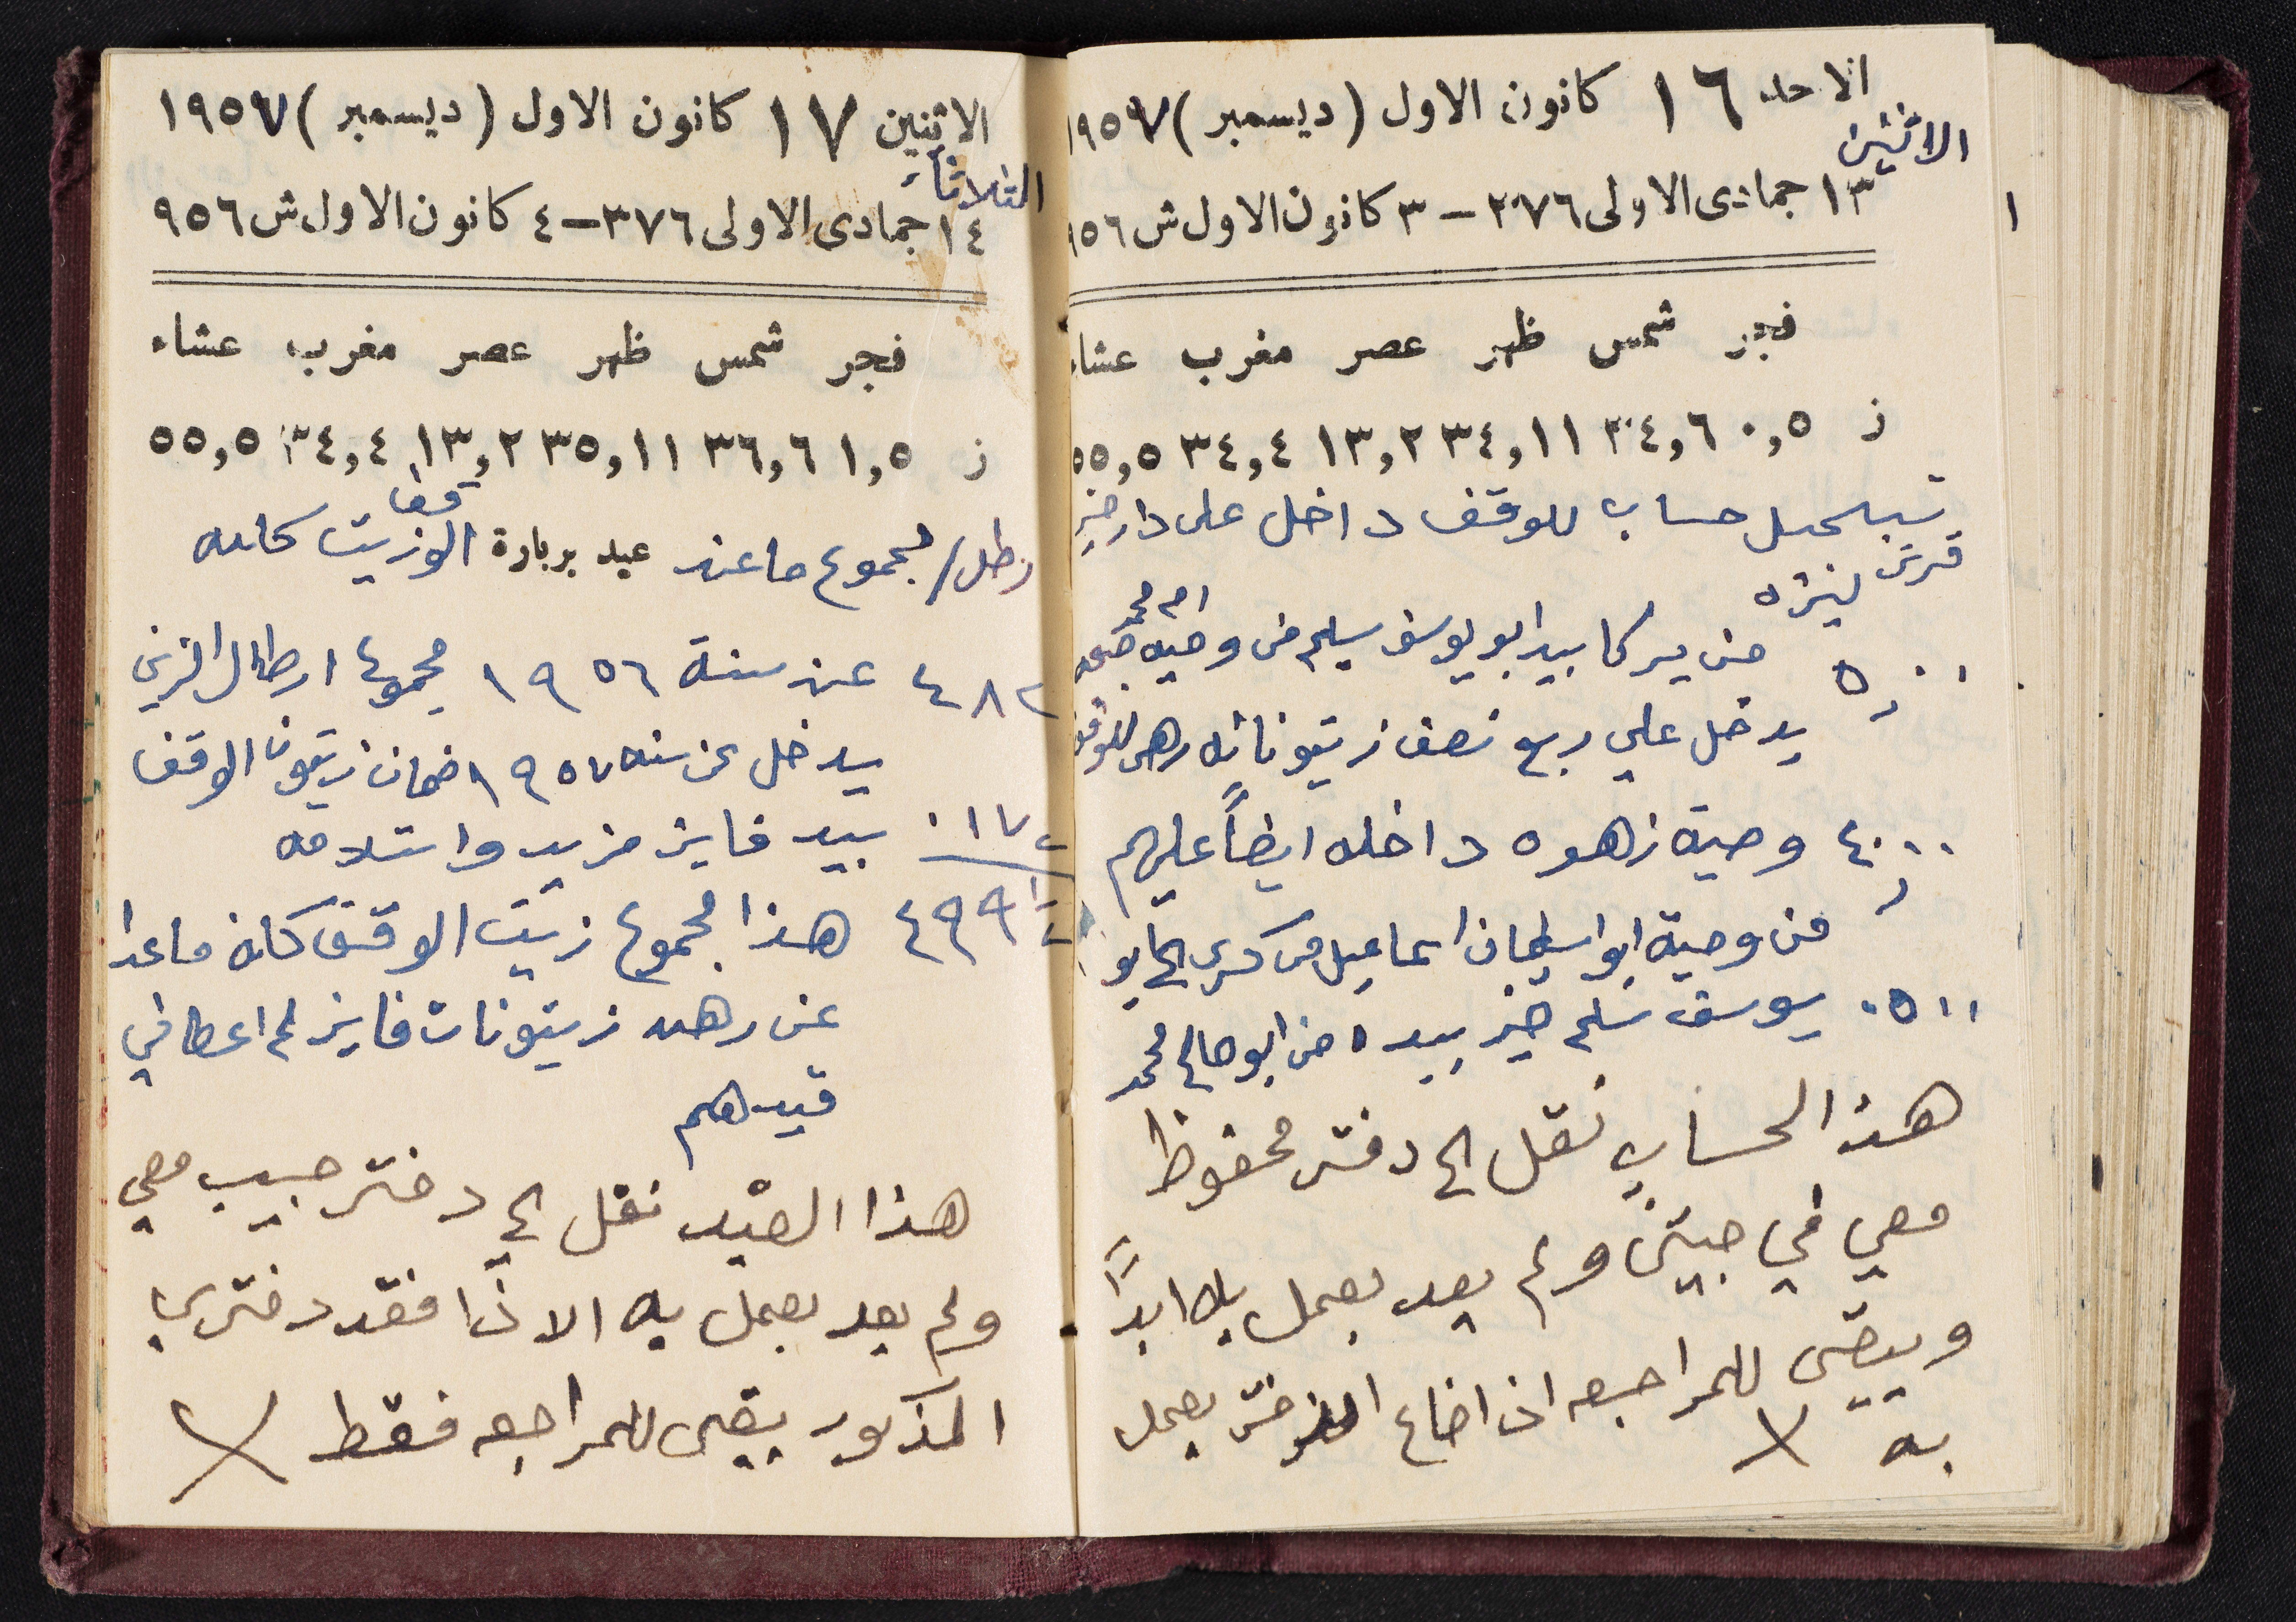 الاحد ١٦ كانون الاول (ديسمبر) ١٩٥٧
الاثنين
١٣ جمادى الاولى ٣٧٦ – ٣ كانون الاول ش ٩٥٦
فجر شمس ظهر عصر مغرب عشاء
ز ٠,٥ ٣٤,٦ ٣٤,١١ ١٣,٢ ٣٤,٤ ٥٥,٥
تسجيل حساب للوقف داخل على دار خير
قرش ليره
٥,٠٠ من يركا بيد ابو يوسف سليم من وصية ام محمد
يدخل علي ربع نصف زيتونات رهن للوقف
٤,٠٠ وصية زهوه داخله ايضاً عليهم
من وصية ابو اسليمان اسماعيل من كسرى الى ابو
يوسف سلم خير بيده من ابو صالح محمد
هذا الحساب نقل الى دفتر محفوظ
معي في جيبتي ولم يعد يعمل به ابداً
ويبقى للمراجعه اذا ضاع الدفتر يعمل
به
الاثنين ١٧ كانون الاول (ديسمبر) ١٩٥٧
الثلاثاء
١٤ جمادى الاولى ٣٧٦ – ٤ كانون الاول ش ٩٥٦
فجر شمس ظهر عصر مغرب عشاء
ز ١,٥ ٣٦,٦ ٣٥,١١ ١٣,٢ ٣٤,٤ ٥٥,٥
رطل / مجموع ما عند عيد بربارة الوقف زيت كامله
٤٨٢ عن سنة ١٩٥٦ مجموع ارطال الزيت
يدخل عن سنه ١٩٥٧ ضمان زيتون الوقف
٠١٧ بيد فايز مزيد واستلامه
٤٩٩ هذا مجموع زيت الوقف كان ما عدا
عن رهن زيتونات فايز لم اعطاني
قيدهم
هذا القيد نقل الى دفتر جيب معي
ولم يعد يعمل به الا اذا فقد دفتري
المذكور يبقى للمراجعه فقط